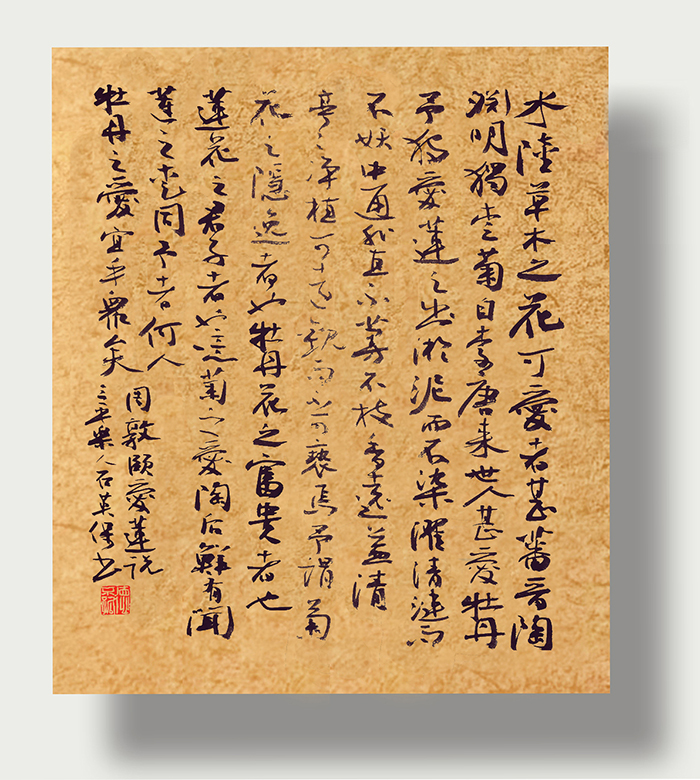 水陸草木之花可愛者甚蕃晋陶
渊明獨爱菊自李唐来世人甚愛牡丹
予獨愛蓮之出淤泥而不染濯清漣而
不妖中通外直不蔓不枝香遠益清
亭々净植可遠觀而不可褻焉予謂菊
花之隱逸者也牡丹花之富貴者也
蓮花之君子者也噫菊之愛陶后鮮有聞
蓮之爱同予者何人
牡丹之愛宜乎衆矣
周敦頤愛蓮説
樂人石英书